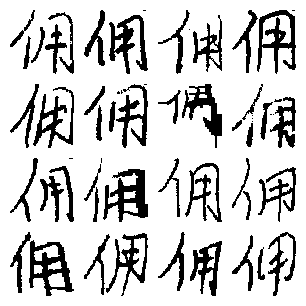 佣佣佣佣
佣佣佣佣
佣佣佣佣
佣佣佣佣